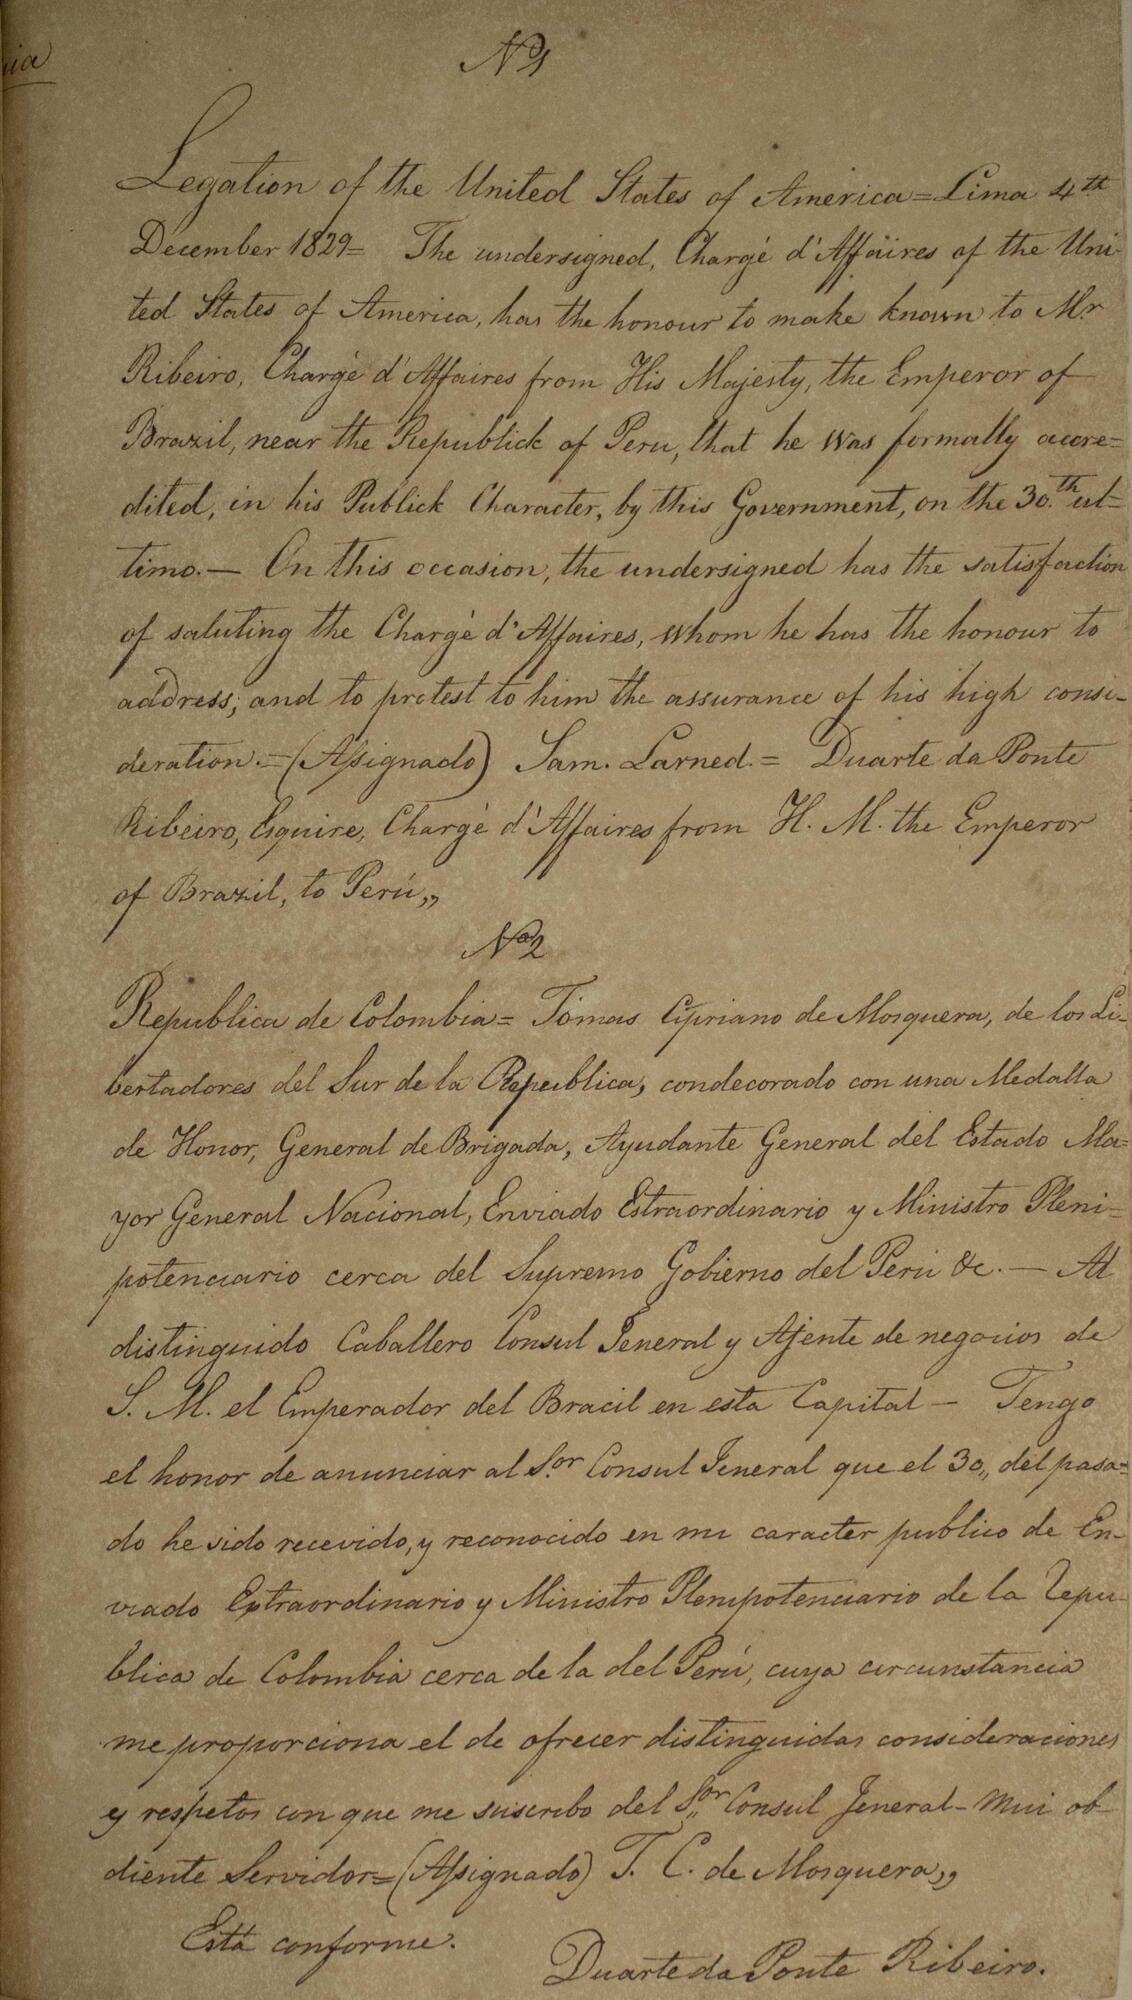 ia
Nº 1
Legation of the United States of America = Lima 4th
December 1829 = The undersigned, Chargé d'Affaires of the Uni-
ted States of America, has the honour to make known to Mr
Ribeiro, Chargé d'Affaires from His Majesty, the Emperor of
Brazil, near the Republick of Peru, that he was formally accre=
dited, in his Publick Character, by this Government, on the 30th ul=
timo. — On this occasion, the undersigned has the satisfaction
of saluting the Chargé d'Affaires, whom he has the honour to
address; and to protest to him the assurance of his high consi-
deration. = (Assignado) Sam. Larned. = Duarte da Ponte
Ribeiro, Esquire, Chargé d'Affaires from H. M. the Emperor
of Brazil, to Perú,,
Nº 2
Republica de Colombia = Tomas Cipriano de Mosquera, de los Li-
bertadores del Sur de la Republica, condecorado con una Medalla
de Honor, General de Brigada, Ayudante General del Estado Ma=
yor General Nacional, Enviado Estraordinario y Ministro Pleni=
potenciario cerca del Supremo Gobierno del Perú &c. — Al
distinguido Caballero Consul Jeneral y Ajente de negocios de
S. M. el Emperador del Bracil en esta Capital — Tengo
el honor de anunciar al S.or Consul Jeneral que el 30,, del pasa=
do he sido recevido, y reconocido en mi caracter publico de En-
viado Estraordinario y Ministro Plenipotenciario de la Repu-
blica de Colombia cerca de la del Perú, cuya circunstancia
me proporciona el de ofrecer distinguidas consideraciones
y respetos con que me suscribo del S.or Consul Jeneral - Mui ob-
diente Servidor = (Assignado) T. C. de Mosquera,,
Está conforme.
Duarte da Ponte Ribeiro.